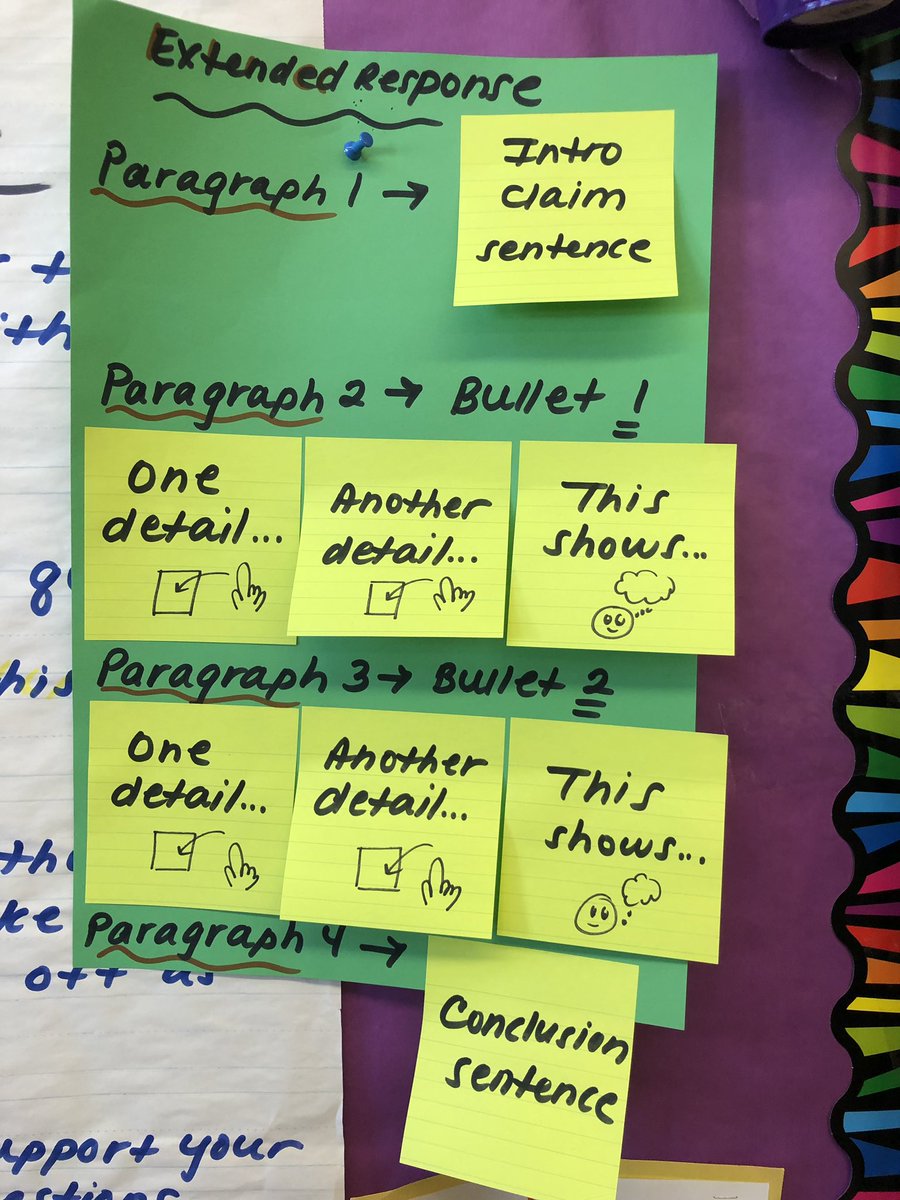 Extended Response
Paragraph 1 →
Intro
claim
sentence
Paragraph 2 → Bullet 1
One
detail...
Another
detail...
This
shows...
Paragraph 3 → Bullet 2
One
detail...
Another
detail...
This
shows...
Paragraph 4 →
Conclusion
sentence
off as
your